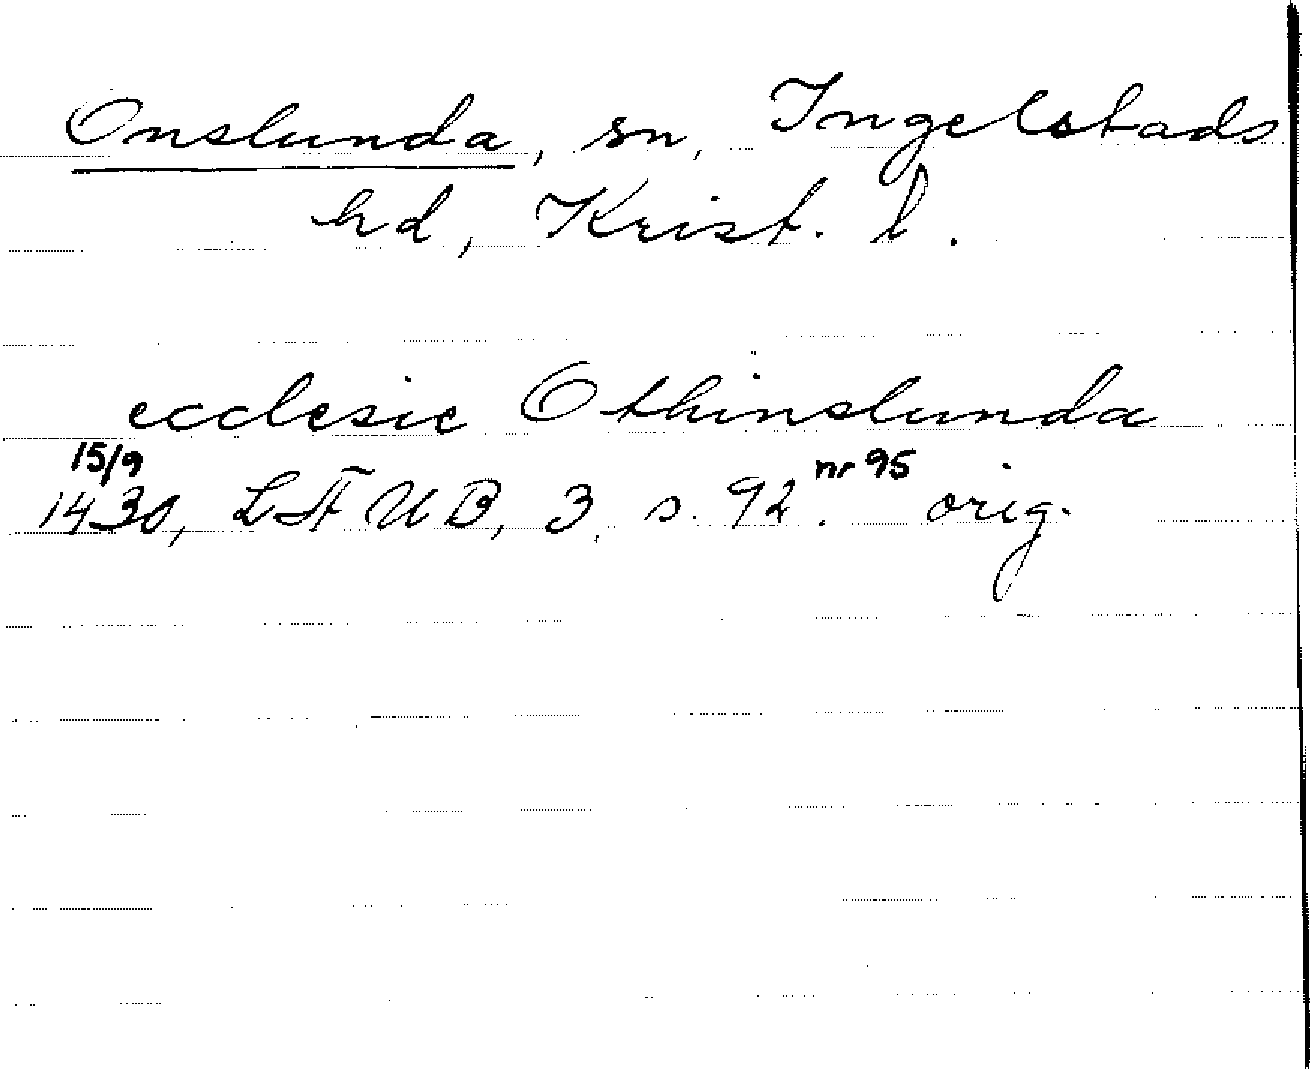 Onslunda, sn, Ingelstads
hd, Krist. l.
ecclesie Othinslunda
15/9 nr 95
1430, LÄUB, 3, s. 92. orig.